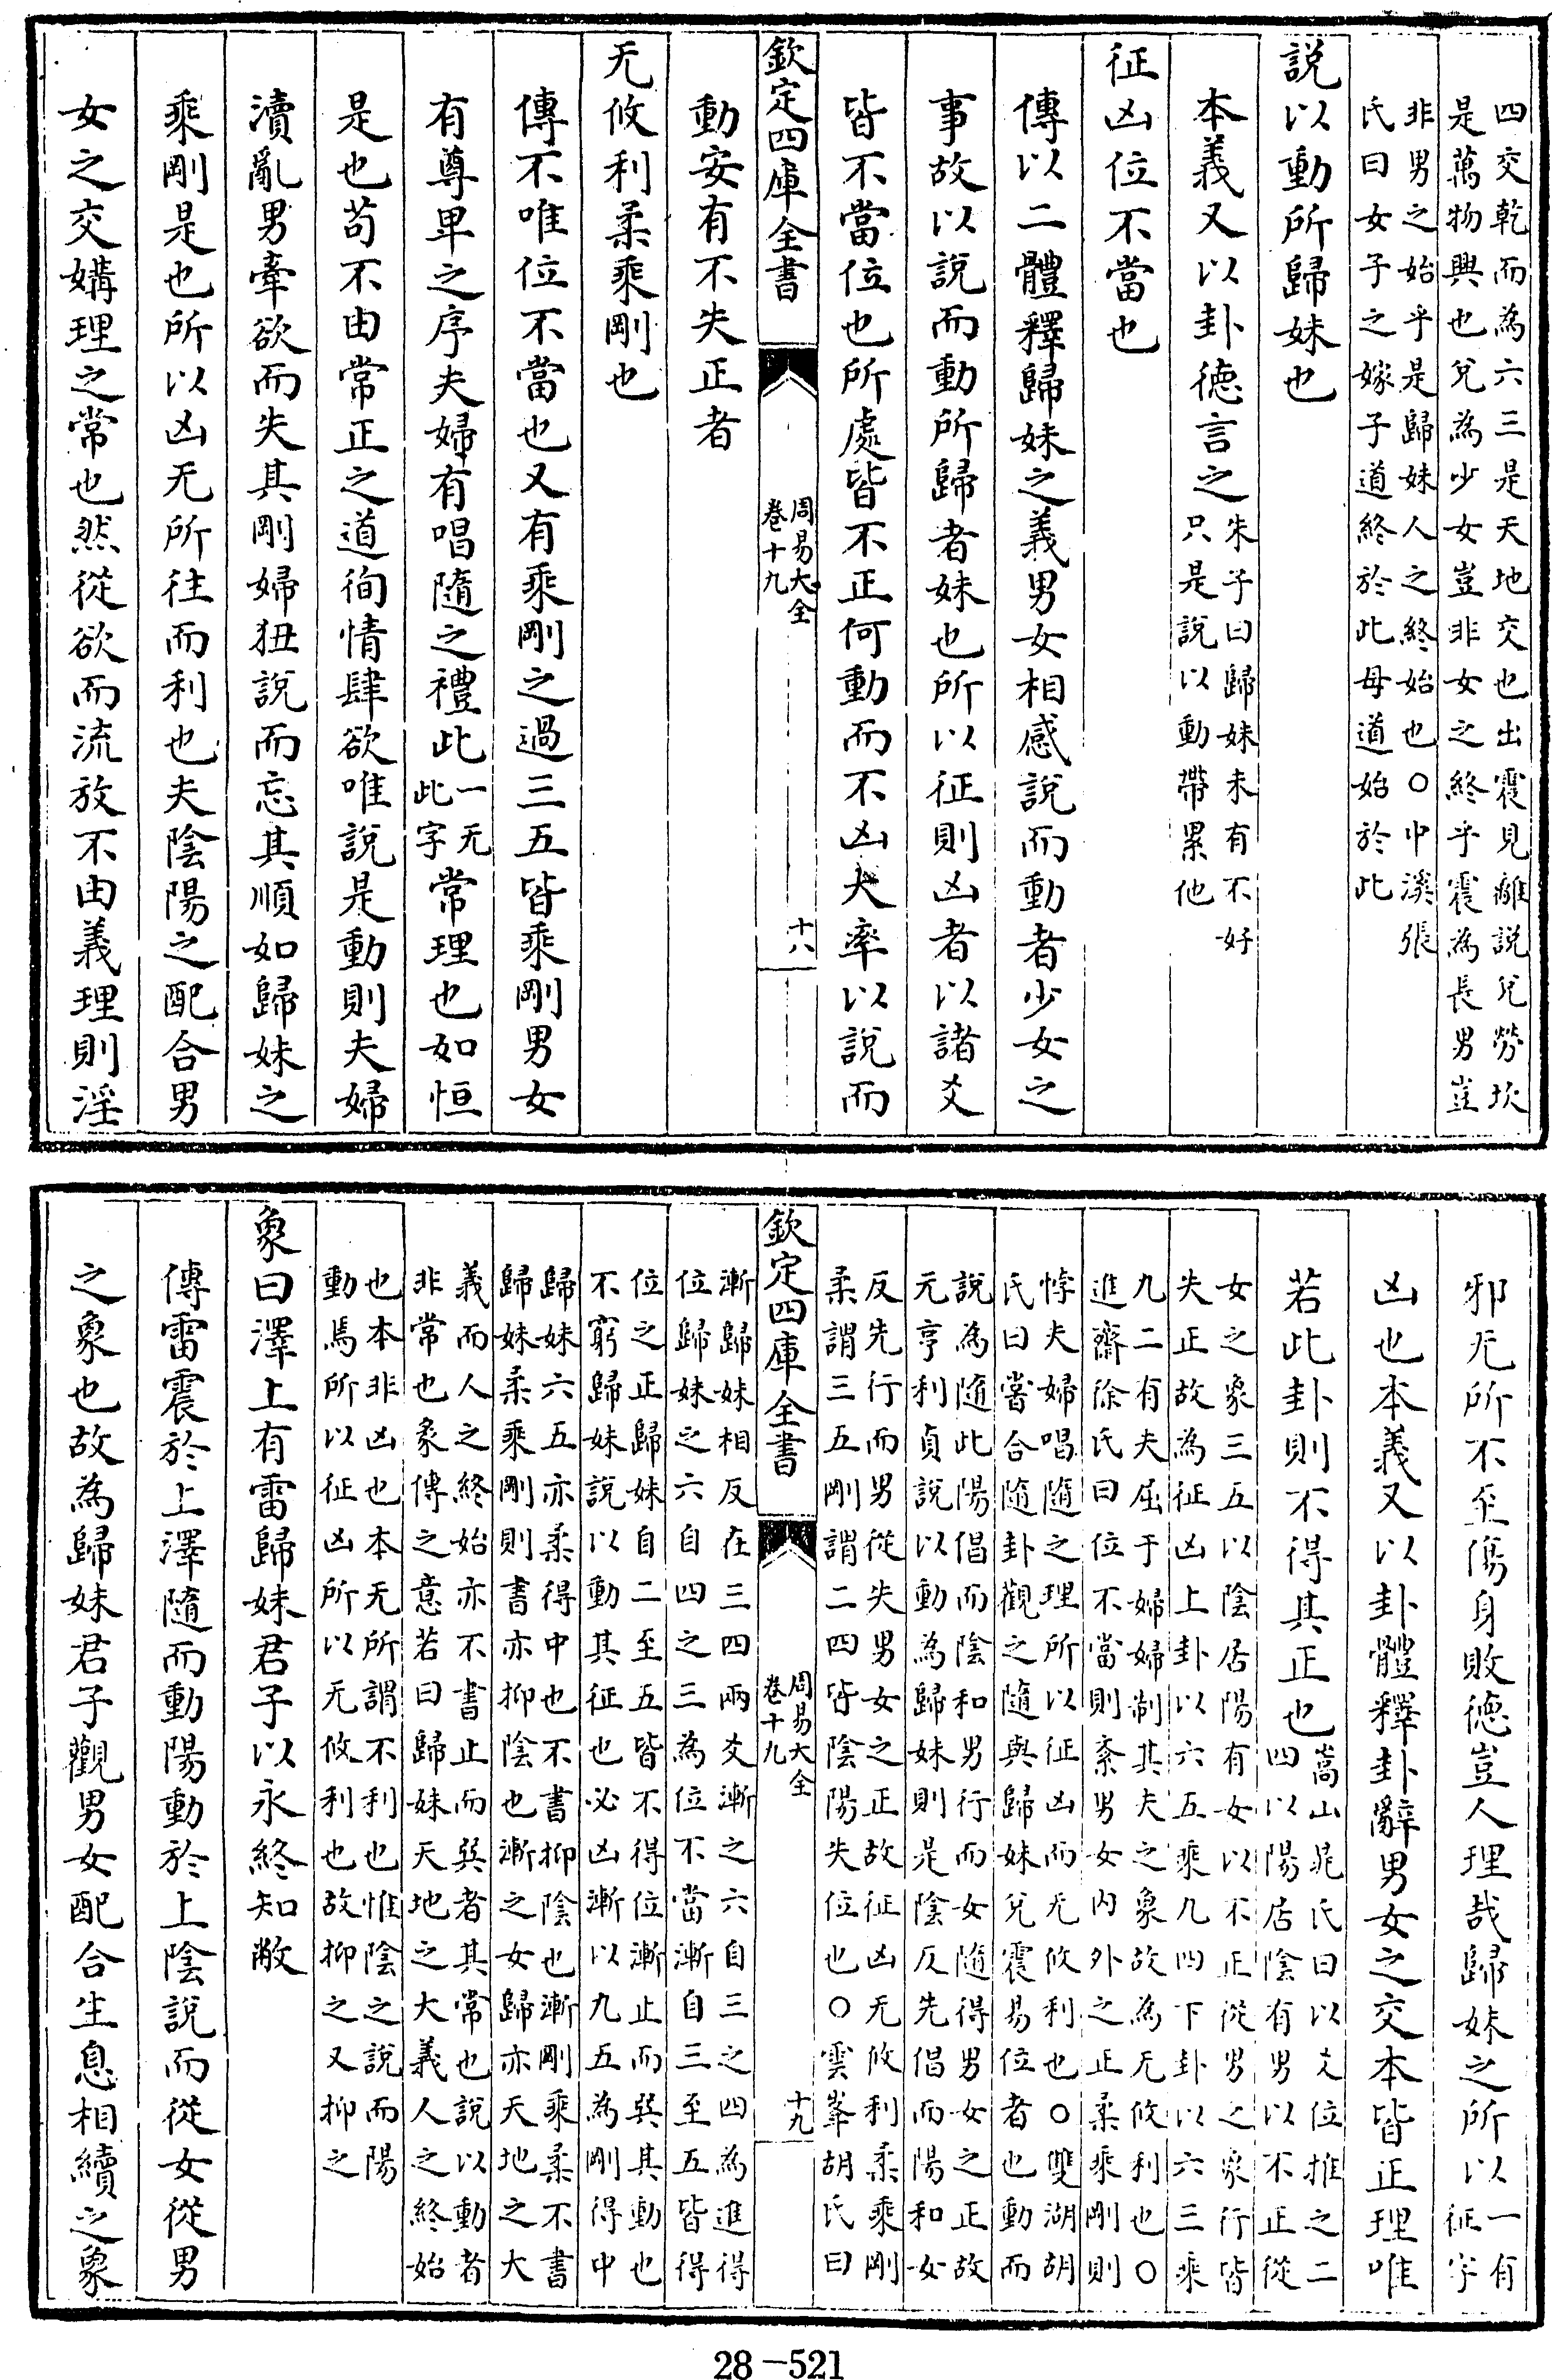 四交乾而為六三是天地交也出震見離説兊勞坎
是萬物興也兊為少女豈非女之終乎震為長男豈
非男之始乎是歸妹人之終始也○中溪張
氏曰女子之嫁子道終於此母道始於此
説以動所歸妹也
本義又以卦徳言之朱子曰歸妹未有不好
只是説以動帶累他
征凶位不當也
傳以二體釋歸妹之義男女相感説而動者少女之
事故以説而動所歸者妹也所以征則凶者以諸爻
皆不當位也所處皆不正何動而不凶大率以説而
欽定四庫全書
周易大全
卷十九
十八
動安有不失正者
无攸利柔乘剛也
傳不唯位不當也又有乘剛之過三五皆乘剛男女
有尊卑之序夫婦有唱隨之禮此一无
此字常理也如恒
是也苟不由常正之道徇情肆欲唯説是動則夫婦
瀆亂男牽欲而失其剛婦狃説而忘其順如歸妹之
乘剛是也所以凶无所往而利也夫陰陽之配合男
女之交媾理之常也然從欲而流放不由義理則淫
邪无所不至傷身敗徳豈人理哉歸妹之所以一有
征字
凶也本義又以卦體釋卦辭男女之交本皆正理唯
若此卦則不得其正也嵩山晁氏曰以爻位推之二
四以陽居陰有男以不正從
女之象三五以陰居陽有女以不正從男之象行皆
失正故為征凶上卦以六五乘九四下卦以六三乘
九二有夫屈于婦婦制其夫之象故為无攸利也○
進齋徐氏曰位不當則紊男女内外之正柔乘剛則
悖夫婦唱隨之理所以征凶而无攸利也○雙湖胡
氏曰嘗合隨卦觀之隨與歸妹兊震易位者也動而
説為隨此陽倡而陰和男行而女隨得男女之正故
元亨利貞説以動為歸妹則是陰反先倡而陽和女
反先行而男從失男女之正故征凶无攸利柔乘剛
柔謂三五剛謂二四皆陰陽失位也○雲峯胡氏曰
欽定四庫全書
周易大全
卷十九
十九
漸歸妹相反在三四兩爻漸之六自三之四為進得
位歸妹之六自四之三為位不當漸自三至五皆得
位之正歸妹自二至五皆不得位漸止而巽其動也
不窮歸妹説以動其征也必凶漸以九五為剛得中
歸妹六五亦柔得中也不書抑陰也漸剛乘柔不書
歸妹柔乘剛則書亦抑陰也漸之女歸亦天地之大
義而人之終始亦不書止而巽者其常也説以動者
非常也彖傳之意若曰歸妹天地之大義人之終始
也本非凶也本无所謂不利也惟陰之説而陽
動焉所以征凶所以无攸利也故抑之又抑之
象曰澤上有雷歸妹君子以永終知敝
傳雷震於上澤隨而動陽動於上陰説而從女從男
之象也故為歸妹君子觀男女配合生息相續之象
28-521